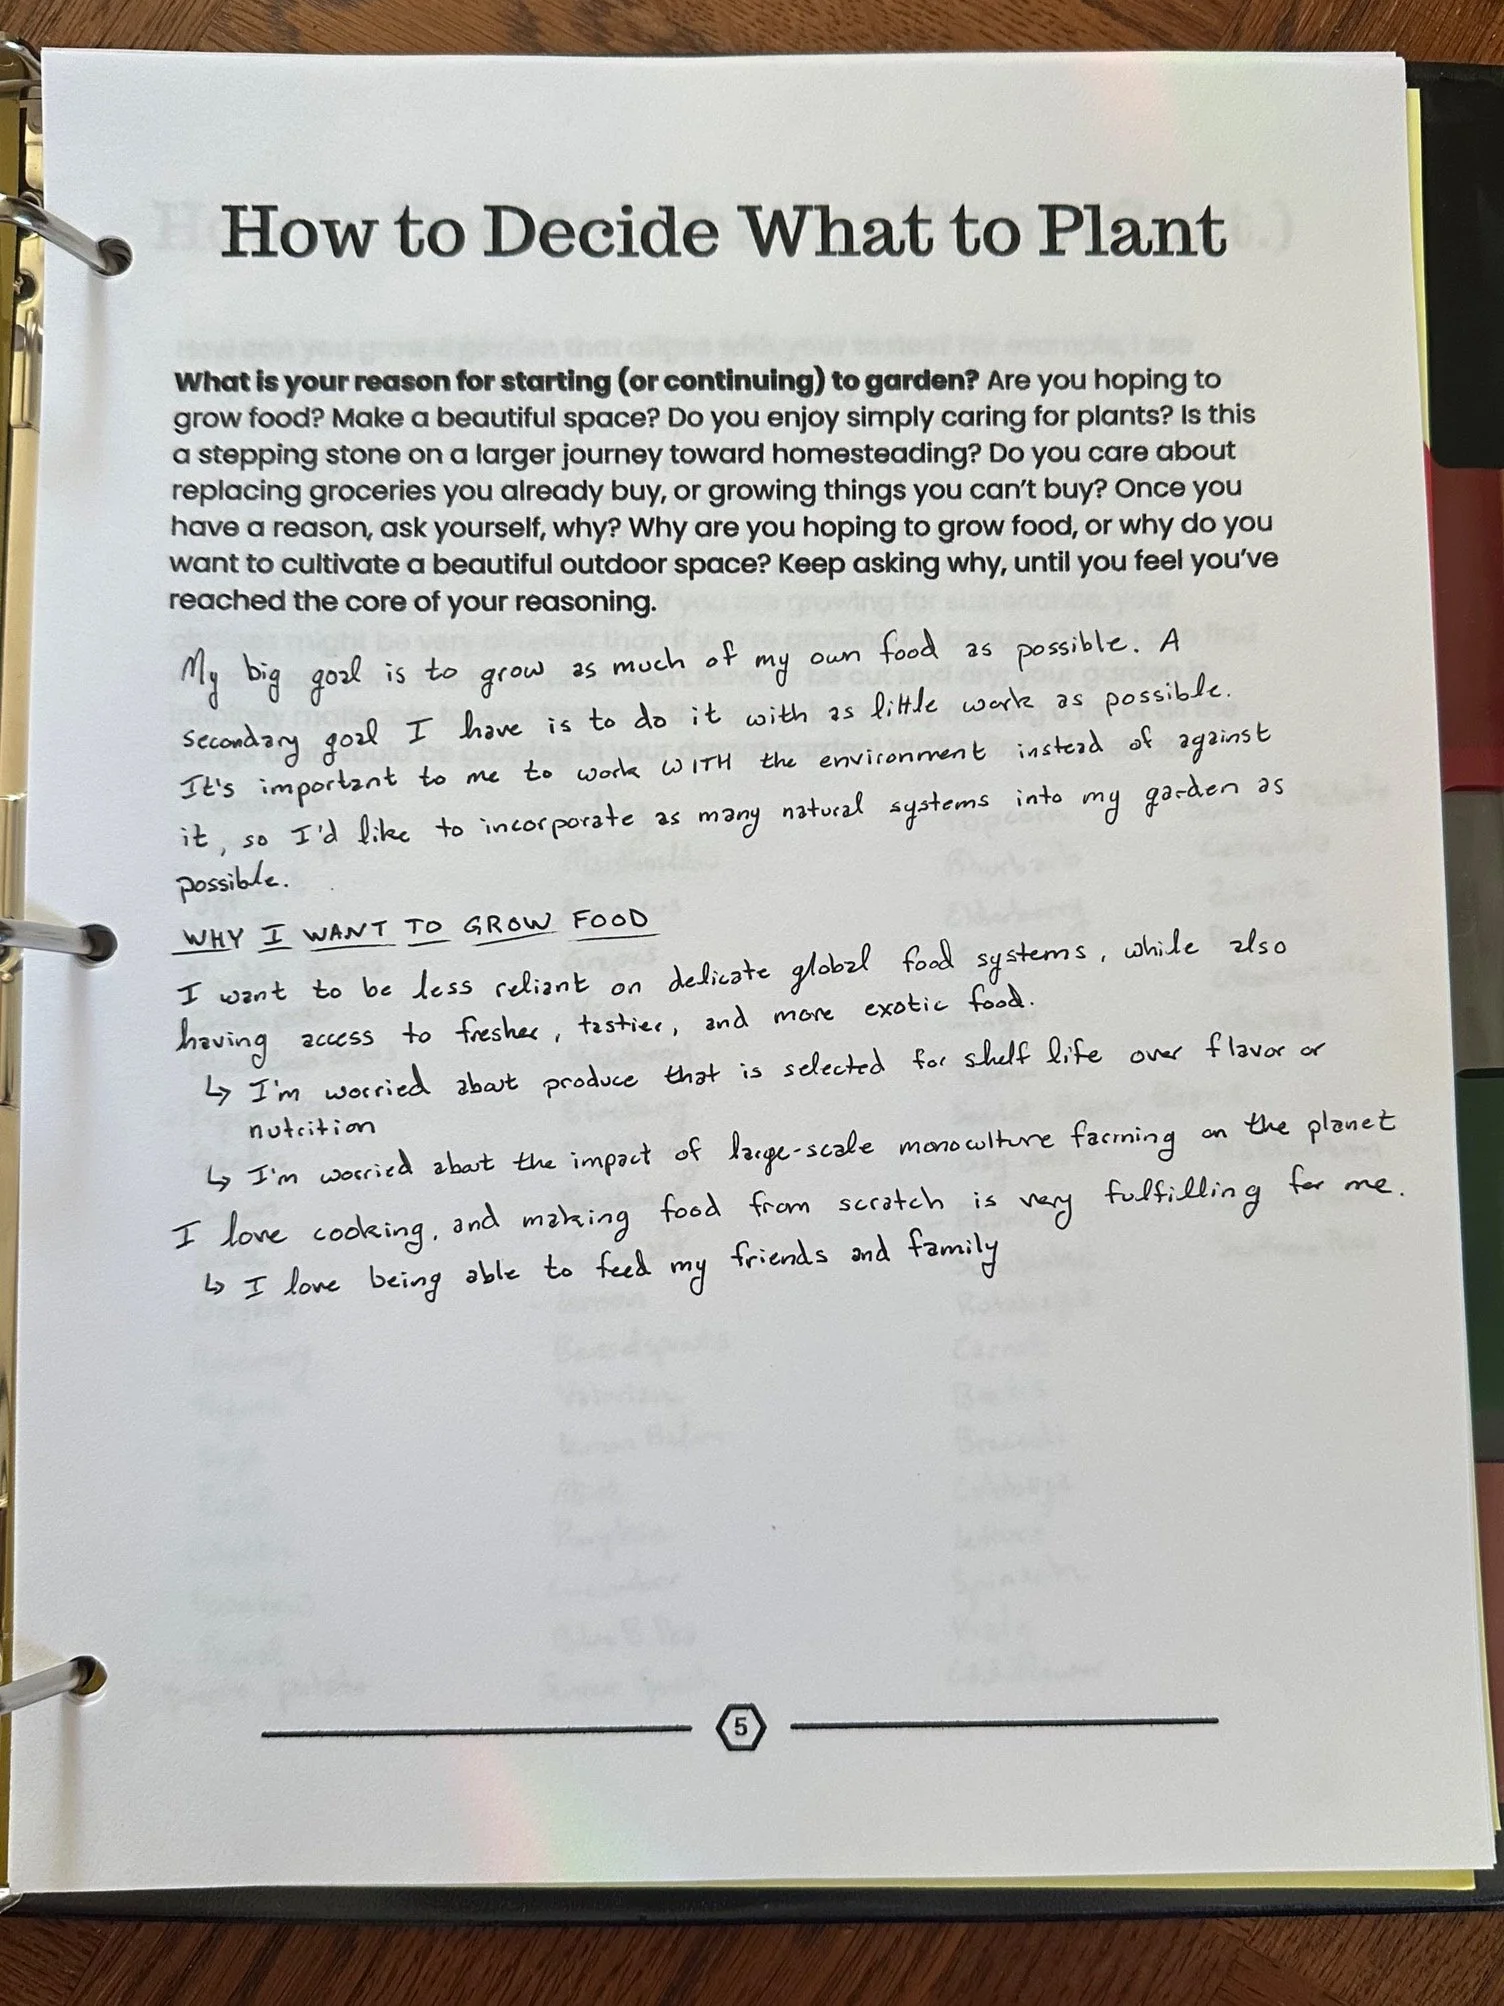 How to Decide What to Plant
What is your reason for starting (or continuing) to garden? Are you hoping to
grow food? Make a beautiful space? Do you enjoy simply caring for plants? Is this
a stepping stone on a larger journey toward homesteading? Do you care about
replacing groceries you already buy, or growing things you can't buy? Once you
have a reason, ask yourself, why? Why are you hoping to grow food, or why do you
want to cultivate a beautiful outdoor space? Keep asking why, until you feel you've
reached the core of your reasoning.
My big goal is to grow as much of my own food as possible. A
secondary goal I have is to do it with as little work as possible.
It's important to me to work WITH the environment instead of against
it, so I'd like to incorporate as many natural systems into my garden as
possible.
WHY I WANT TO GROW FOOD
I want to be less reliant on delicate global food systems, while also
having access to fresher, tastier, and more exotic food.
↳ I'm worried about produce that is selected for shelf life over flavor or
nutrition
↳ I'm worried about the impact of large-scale monoculture farming on the planet
I love cooking, and making food from scratch is very fulfilling for me.
↳ I love being able to feed my friends and family
5